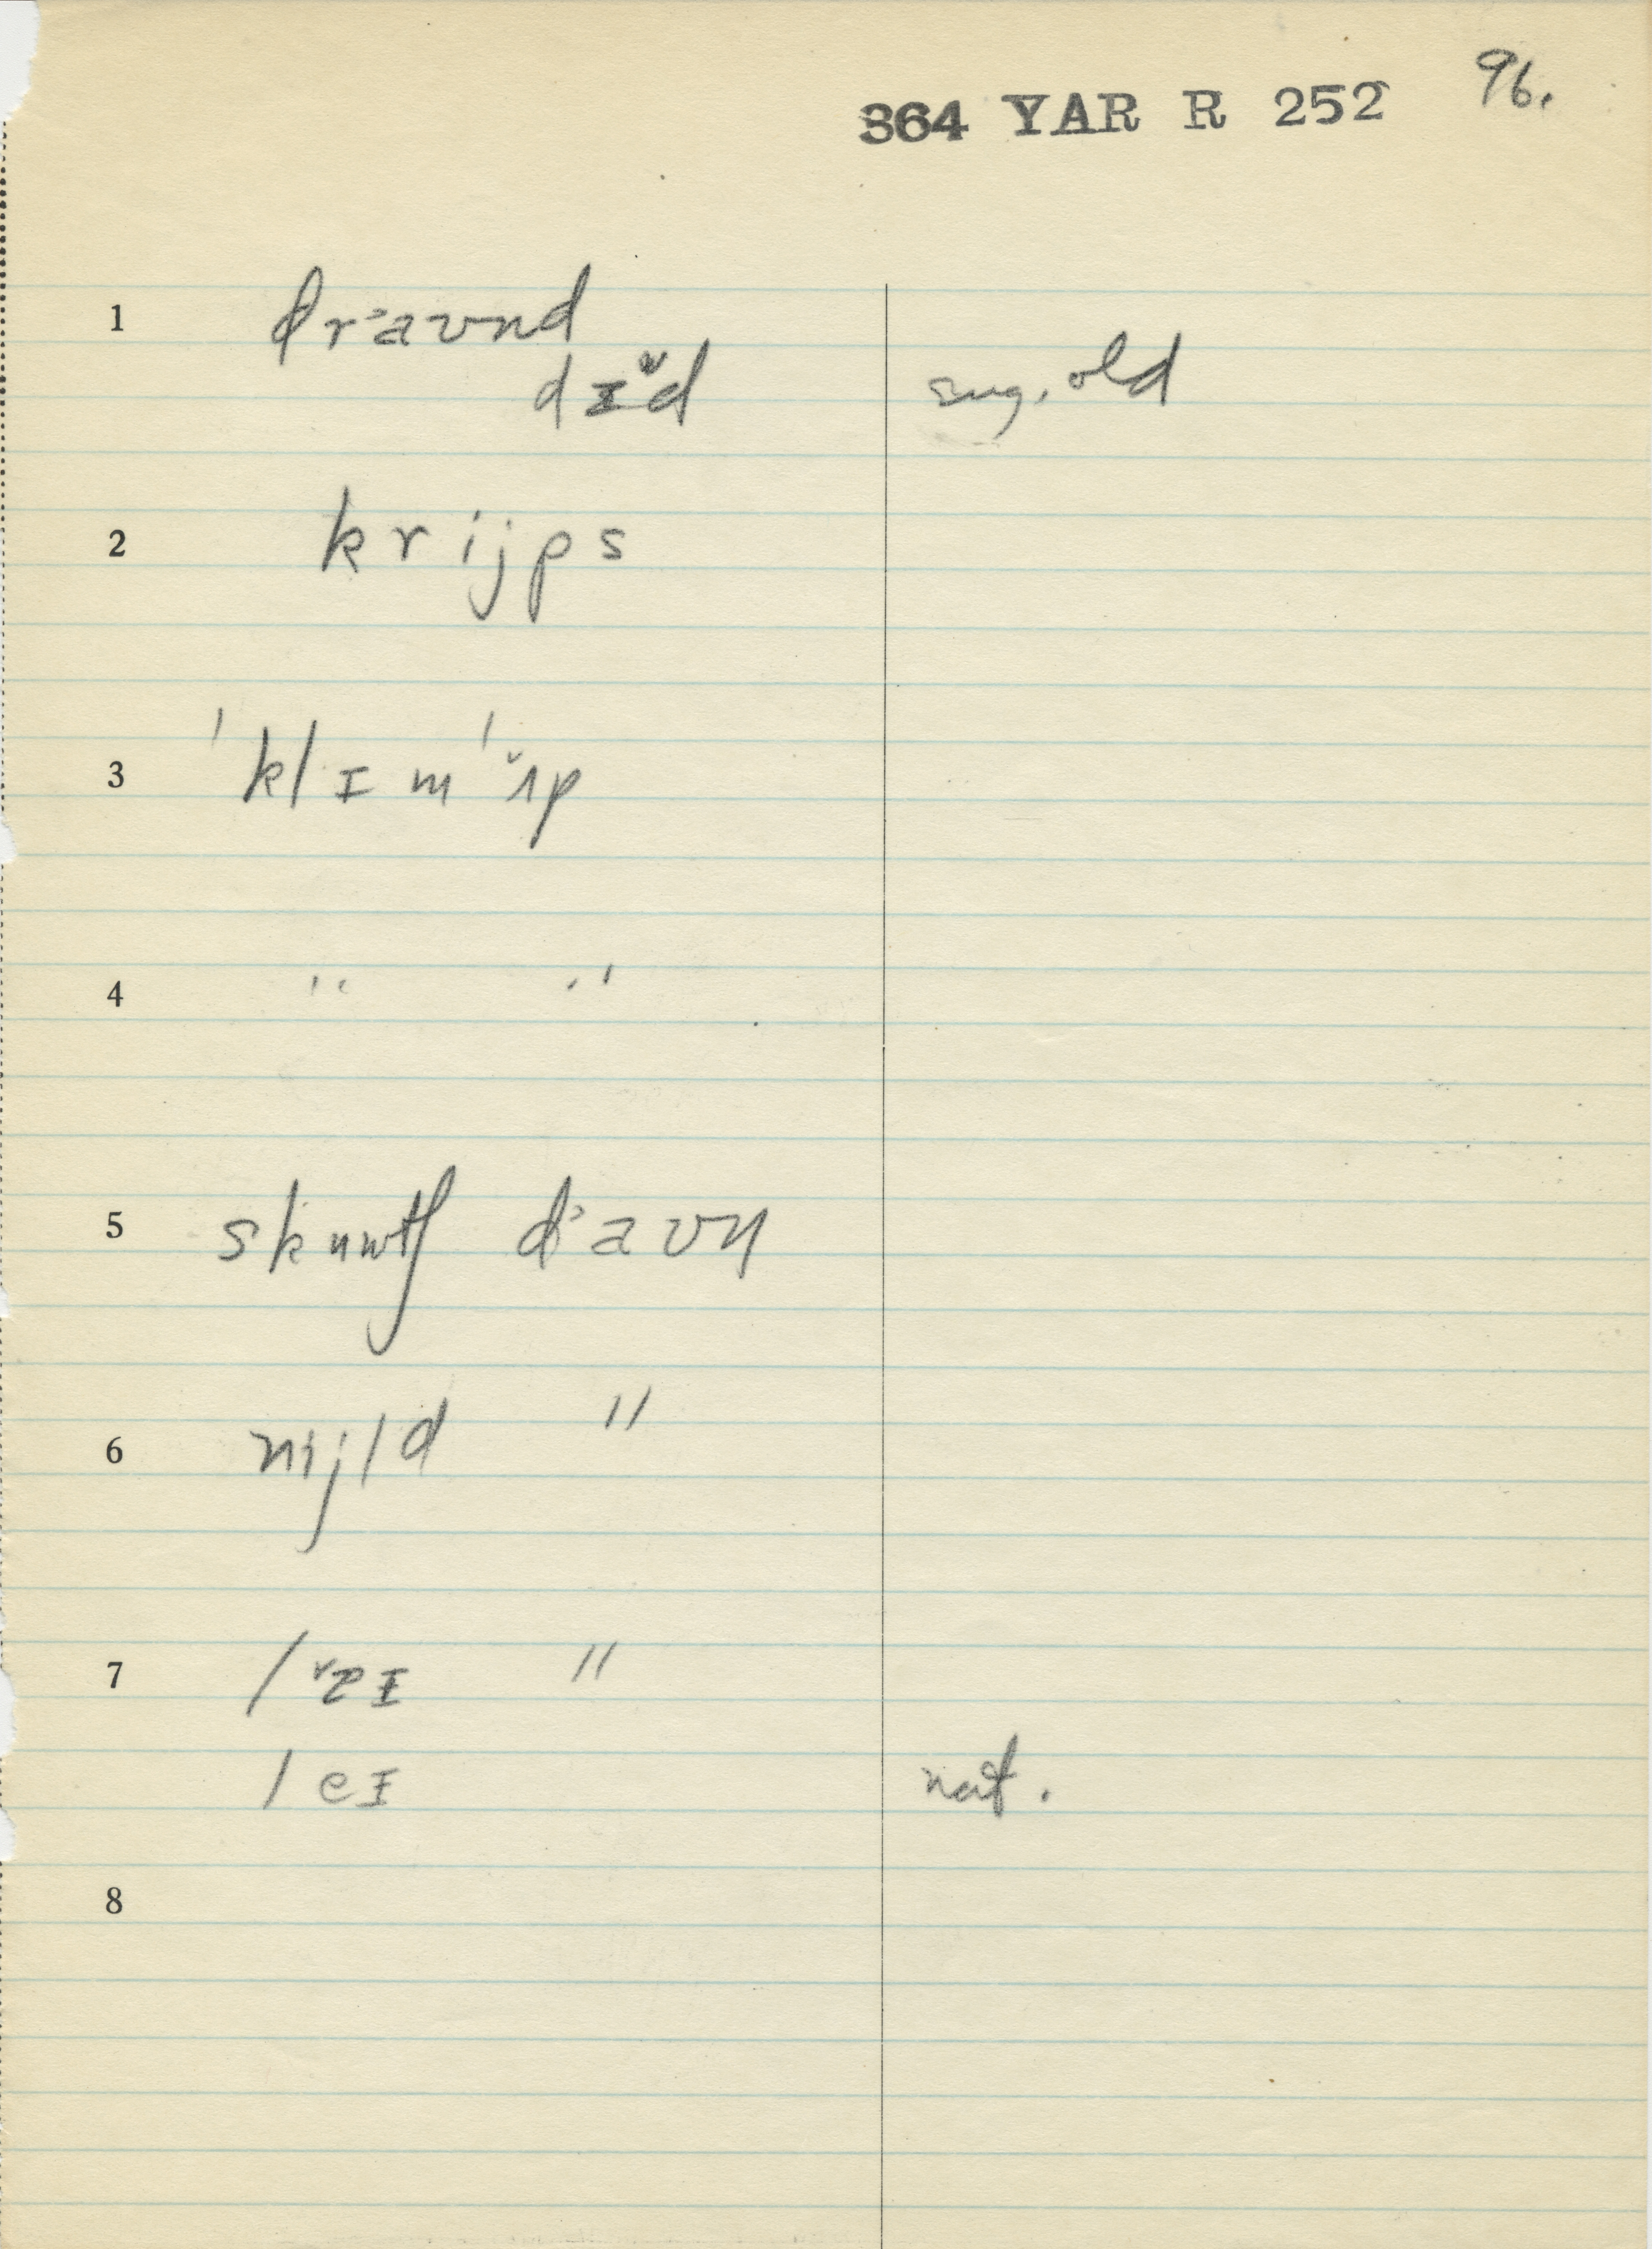 364 YAR R 252 96.
1 dr˃avnd
dɪᵛd sug. old
2 krijps
3 ˈklɪmˈ ˇʌp
4 " "
5 skuwtʃ d˃avn
6 nijld "
7 lˇɐɪ "
leɪ nat.
8